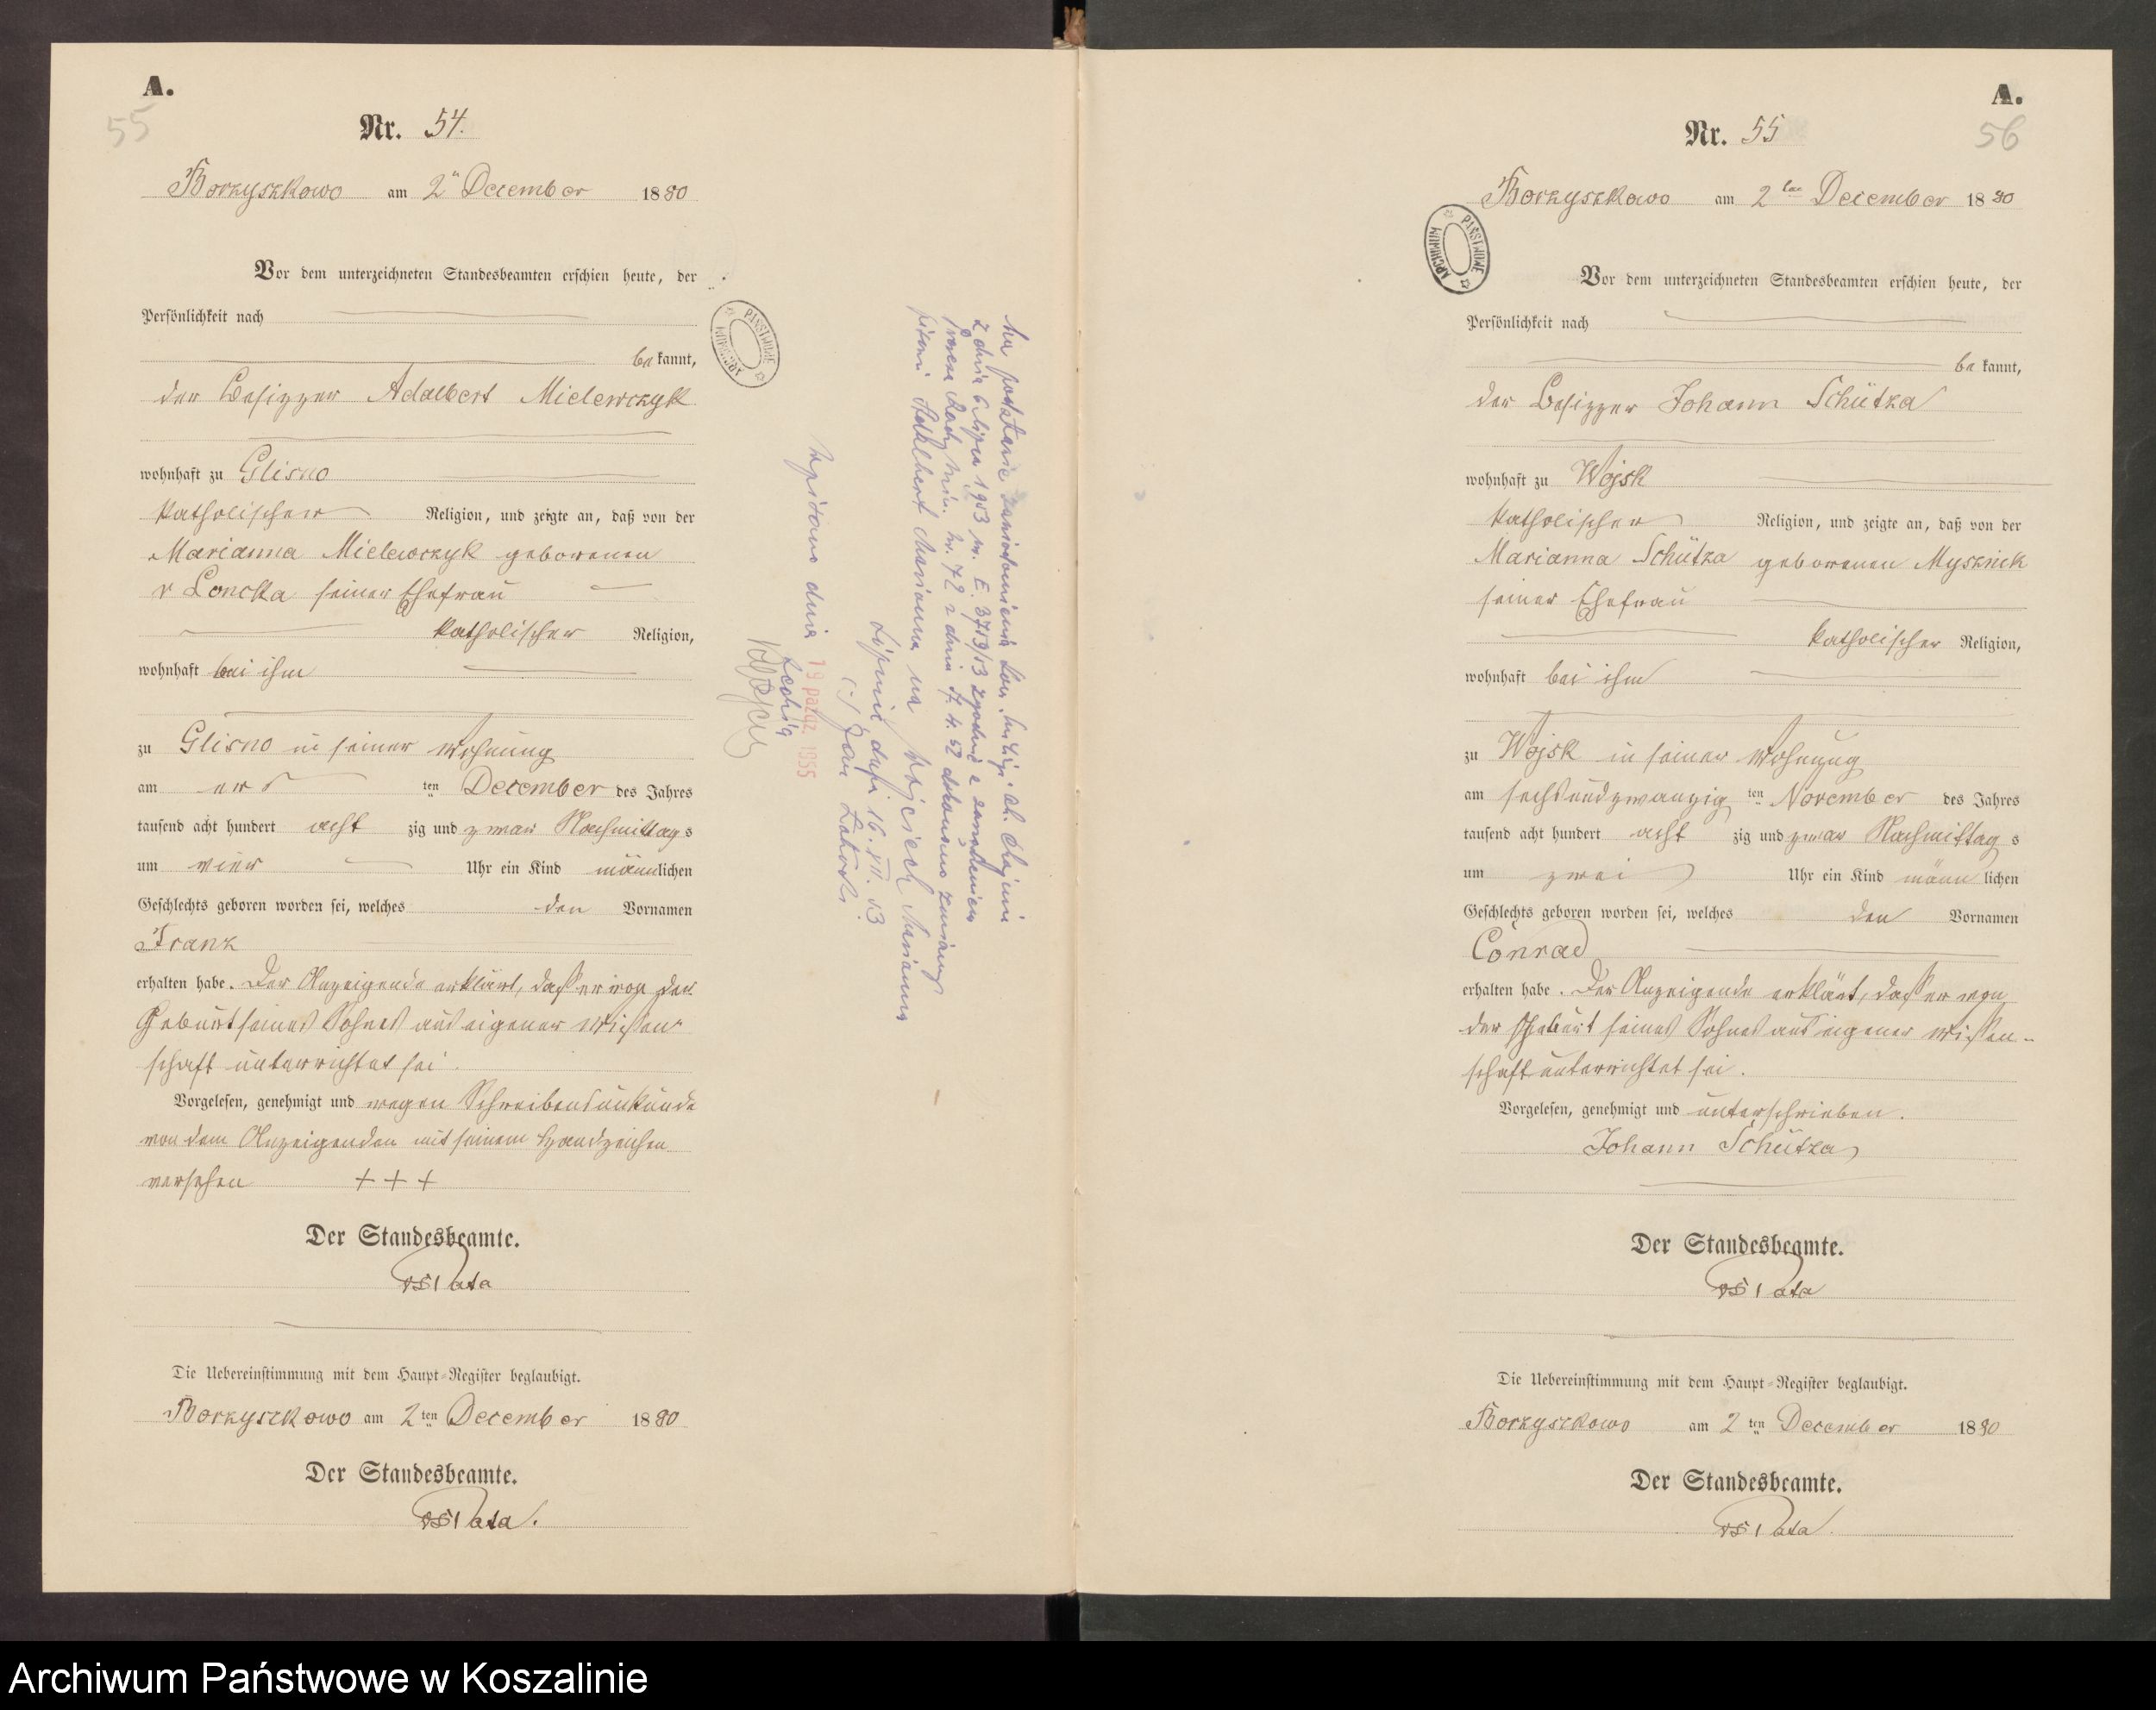 A.
55
Nr. 54.
Borzyszkowo am 2ⁿ December 1880
Vor dem unterzeichneten Standesbeamten erschien heute, der
Persönlichkeit nach
bekannt,
der Besizzer Adalbert Mielewczyk
wohnhaft zu Glisno
katholischer Religion, und zeigte an, daß von der
Marianna Mielewczyk geborenen
v Loncka seiner Ehefrau
katholischer Religion,
wohnhaft bei ihm
zu Glisno in seiner Wohnung
am ers ten December des Jahres
tausend acht hundert acht zig und zwar Nachmittags
um vier Uhr ein Kind männlichen
Geschlechts geboren worden sei, welches den Vornamen
Franz
erhalten habe. Der Anzeigende erklärt, daß er von der
Geburt seines Sohnes aus eigener Wissen-
schaft unterrichtet sei.
Vorgelesen, genehmigt und wegen Schreibensunkunde
von dem Anzeigenden mit seinem Handzeichen
versehen +++
Der Standesbeamte.
Die Uebereinstimmung mit dem Haupt-Register beglaubigt.
Borzyszkowo am 2ten December 1880
Der Standesbeamte.
ARCHIWUM PAŃSTWOWE
Na podstawie zawiadomienia
z dnia 6 lipca 1953 nr. E. 3719/53 zgodnie z zarządzeniem
Nr. 72 z dnia 7. 4. 52 dokonano zmiany
pisowni Adalbert Marianna na Wojciech Marianna
Lipnica, dnia 16. VII. 53
(-) Jan
Wpisano dnia 19 paźdz. 1955
A.
56
Nr. 55
Borzyszkowo am 2ten December 1880
ARCHIWUM PAŃSTWOWE
Vor dem unterzeichneten Standesbeamten erschien heute, der
Persönlichkeit nach
bekannt,
der Besizzer Johann Schütza
wohnhaft zu Wojsk
katholischer Religion, und zeigte an, daß von der
Marianna Schütza geborenen Mysznik
seiner Ehefrau
katholischer Religion,
wohnhaft bei ihm
zu Wojsk in seiner Wohnung
am sechsundzwanzig ten November des Jahres
tausend acht hundert acht zig und zwar Nachmittags
um zwei Uhr ein Kind männlichen
Geschlechts geboren worden sei, welches den Vornamen
Conrad
erhalten habe. Der Anzeigende erklärt, daß er von
der Geburt seines Sohnes aus eigener Wissen-
schaft unterrichtet sei.
Vorgelesen, genehmigt und unterschrieben.
Johann Schütza
Der Standesbeamte.
Die Uebereinstimmung mit dem Haupt-Register beglaubigt.
Borzyszkowo am 2ten December 1880
Der Standesbeamte.
Archiwum Państwowe w Koszalinie